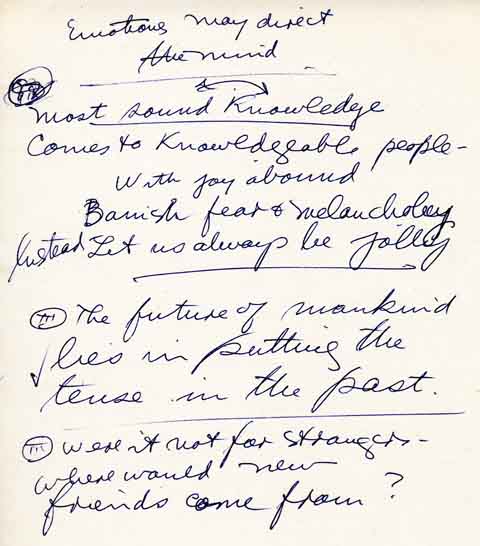 Emotions may direct
the mind
most sound Knowledge
Comes to Knowledgeable people -
With joy abound
Banish fear & melancholey
Instead Let us always be jolly
III The future of mankind
lies in putting the
tense in the past.
III Were it not for strangers -
where would new
friends come from?